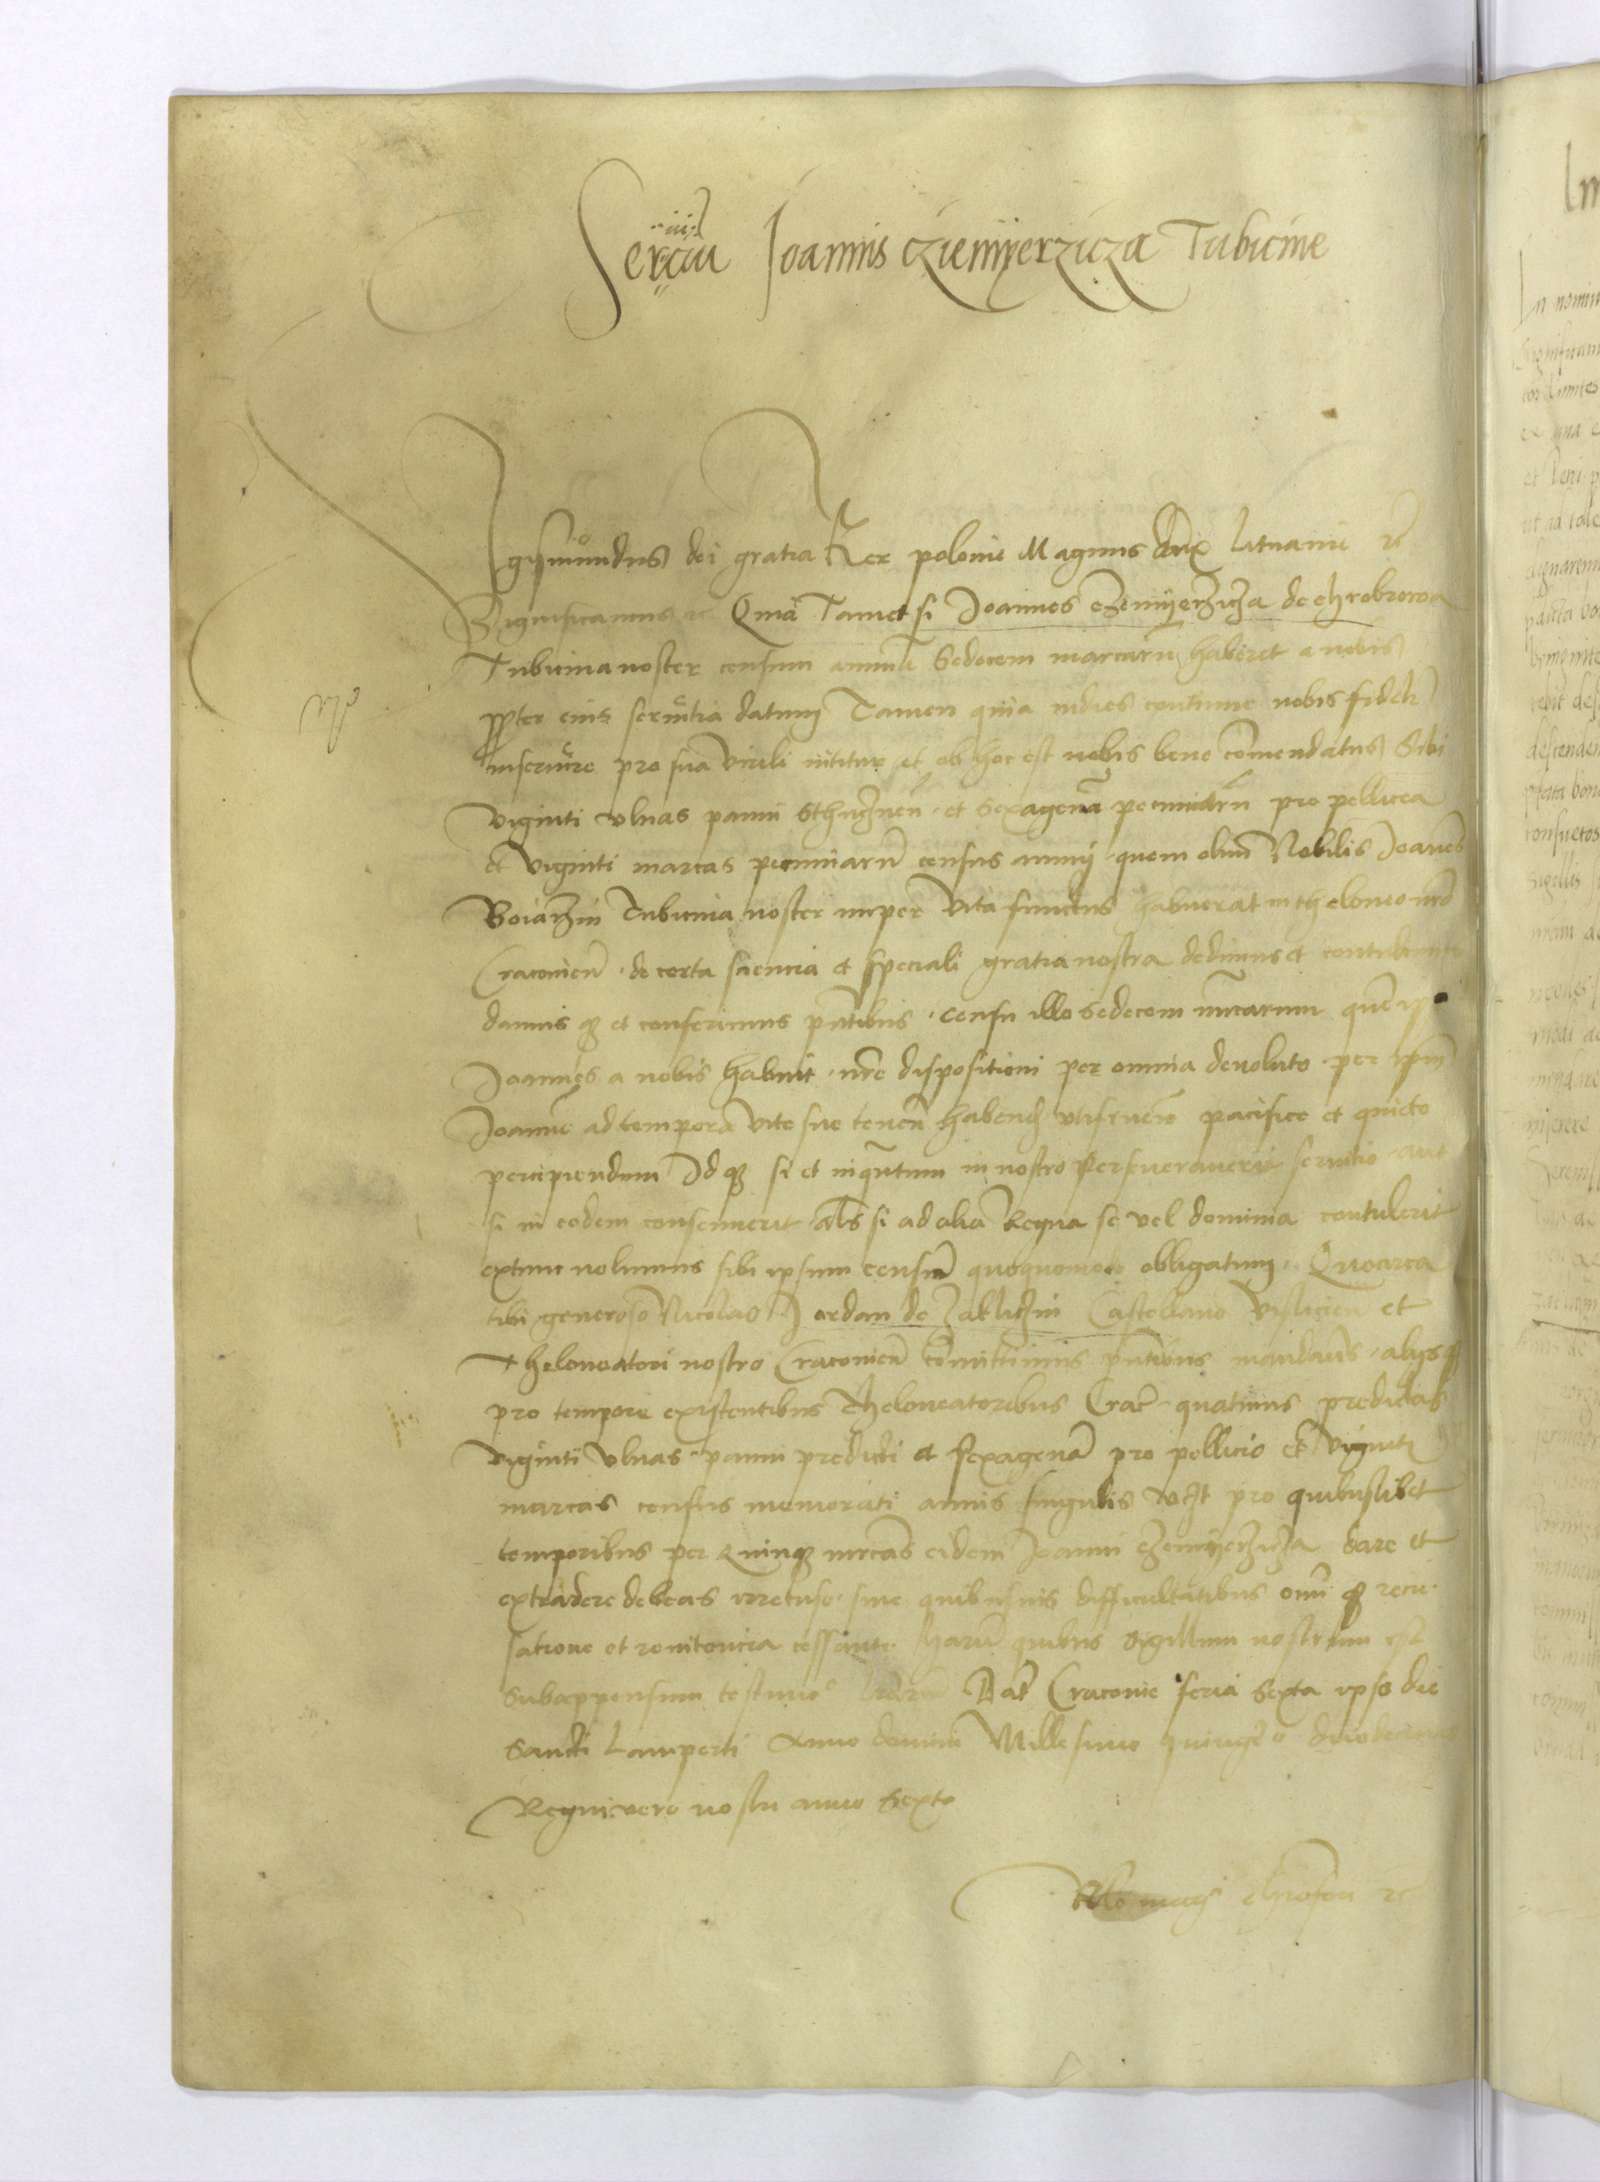 Serviciu Joannis Cziemyerzicza Tubicine
Sigismundus dei gratia Rex polonie Magnus dux Lituanie etc
Significamus etc Quia Tametsi Joannes czemyerzicza de chrobrowa
Tubicina noster censum annuu Sedecem marcaru haberet a nobis
ppter eius servitia datum Tamen quia indies continue nobis fideli
inservire pro sua virili nititur et ob hoc est nobis bene comendatus Sibi
viginti ulnas panni et sexagena pecuniaru pro pellicea
et viginti marcas pecuniaru census annuj quem olim Nobilis Joanes
Boiarzin Tubicina noster nuper vita functus habuerat in theloneo nro
Cracovien de certa sciencia et speciali gratia nostra dedimus et contulimus
damusq et conferimus pntibus censu illo sedecem mrcarum que ip
Joannes a nobis habuit nre dispositioni per omnia devoluto per ipm
Joanne ad tempora vite sue tenen habend utifruen pacifice et quiete
percipiendum Idq si et inqntum in nostro perseveraverit servitio aut
si in eodem consenuerit als si ad alia Regna se vel dominia contulerit
extunc nolumus sibi ipsum censum quoquomodo obligatum Quocirca
tibi generoso Nicolao Jordan de Zakliczin Castellano Vislicien et
Theloneatori nostro Cracovien comittimus pntibus mandams alysq
pro tempore existentibus Theloneatoribus Crac quatinus predictas
viginti ulnas panni predicti et sexagena pro pellicio et viginti
marcas census memorati annis singulis pro quibuslibet
temporibus per Quinq mrcas eidem Joanni czemyerzicza dare et
extradere debeas sine quibusvis difficultatibus omiq recu
satione et renitencia cessante harum quibus sigillum nostrum est
subappensum testimo Irarum Dat Cracovie feria sexta ipso die
Sancti Lamperti Anno domini Millesimo quingeo duodecimo
Regni vero nostri anno Sexto